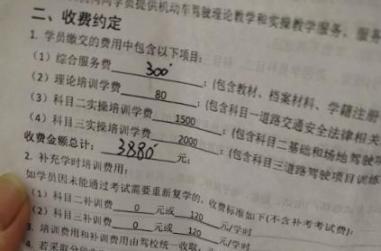 向学员提供机动车驾驶理论教学和实操教学服务, 服务
二、收费约定
1. 学员缴交的费用中包含以下项目:
(1) 综合服务费 300 ; (包含教材、档案材料、学籍注册
(2) 理论培训学费 80 ; (包含科目一道路交通安全法律相关
(3) 科目二实操培训学费 1500 ; (包含科目二基础和场地驾驶
(4) 科目三实操培训学费 2000 ; (包含科目三道路驾驶项目训练
收费金额总计: 3880 元;
2. 补充学时培训费用:
如学员因未能通过考试需要重新复学的, 收费标准如下(不含补考考试费):
(1) 科目二补训费 0 元或 120 元/学时
(2) 科目三补训费 0 元或 120 元/学时
3. 培训费用和补训费用由驾校统一收取;
4. 若采取分